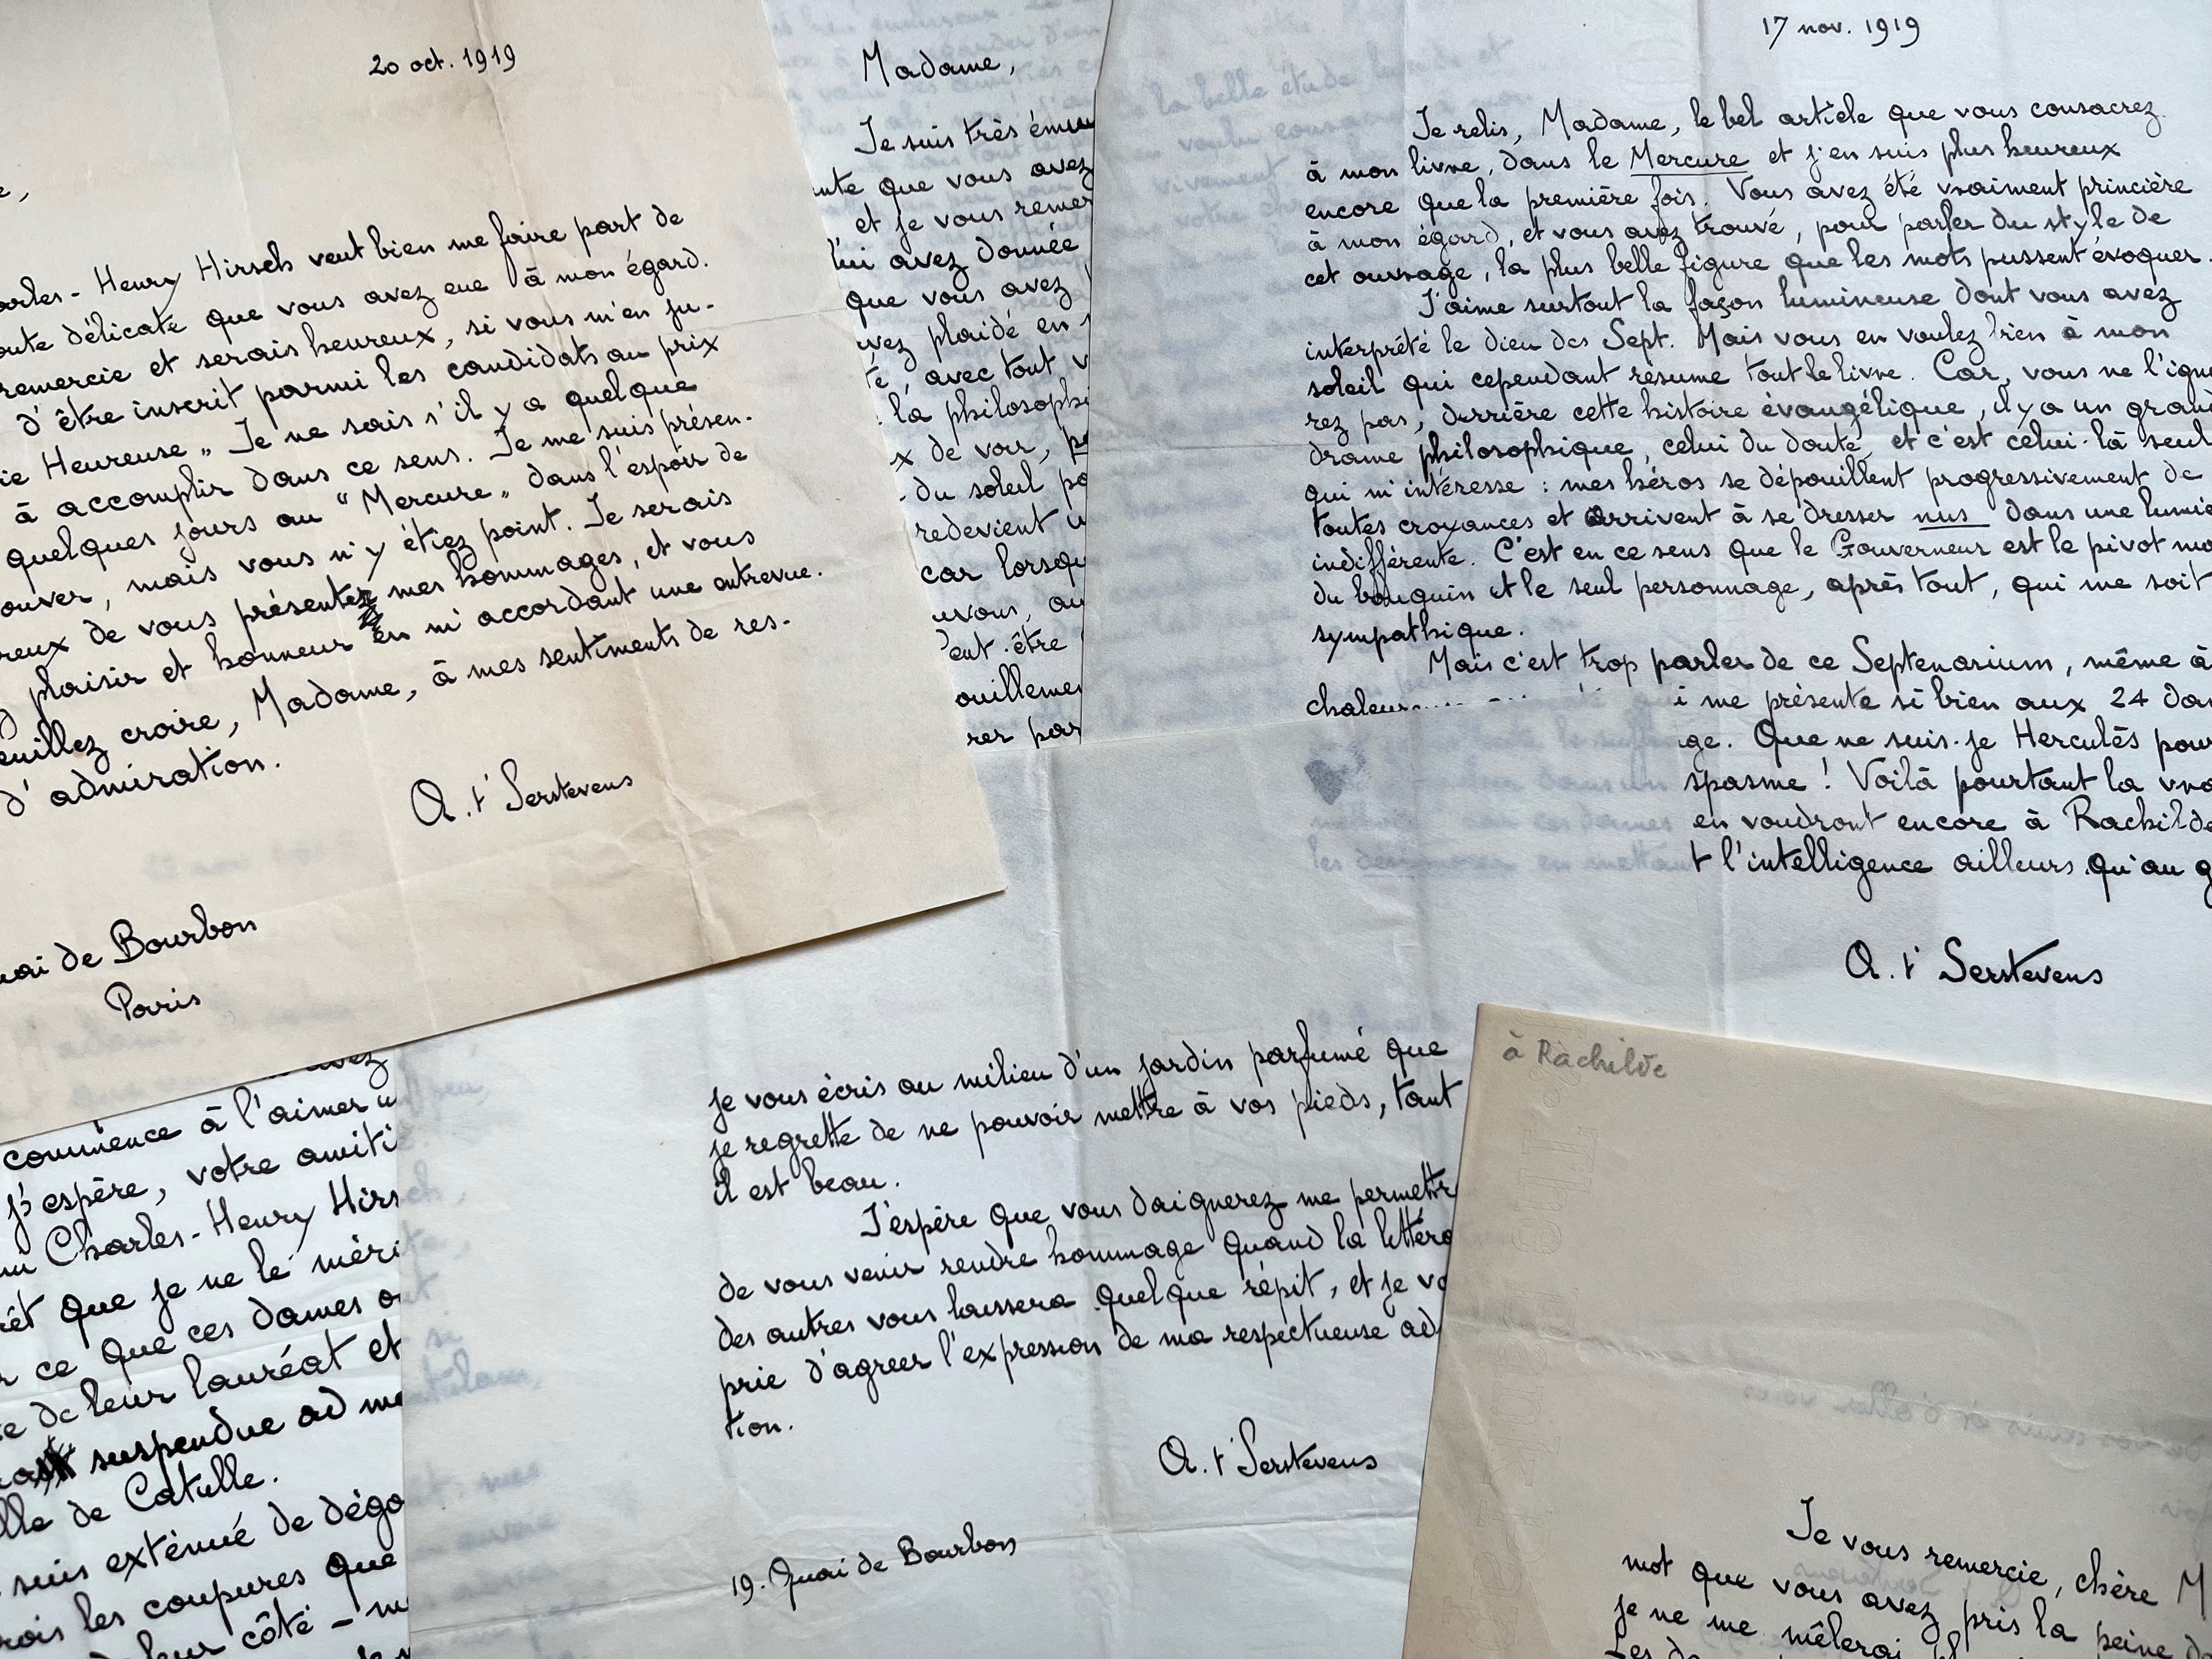 20 oct. 1919
Henry Hirsch veut bien me faire part de
délicate que vous avez eue à mon égard.
remercie et serais heureux, si vous m'en ju-
d'être inscrit parmi les candidats au prix
ie Heureuse „ Je ne sais s'il y a quelque
à accomplir dans ce sens. Je me suis présen-
quelques jours au "Mercure„ dans l'espoir de
ouver, mais vous n'y étiez point. Je serais
reux de vous présenter mes hommages, et vous
plaisir et honneur en m'accordant une entrevue.
euillez croire, Madame, à mes sentiments de res-
d'admiration.
A. t'Serstevens
uai de Bourbon
Paris
Madame,
Je suis très ému
que vous avez
et je vous remer
lui avez donnée
que vous avez
avez plaidé en
té, avec tout v
la philosophi
x de voir, pa
du soleil pa
redevient u
car lorsqu
avons, au
eut-être
ouillemen
rer par
17 nov. 1919
Je relis, Madame, le bel article que vous consacrez
à mon livre, dans le Mercure et j'en suis plus heureux
encore que la première fois. Vous avez été vraiment princière
à mon égard, et vous avez trouvé, pour parler du style de
cet ouvrage, la plus belle figure que les mots pussent évoquer.
J'aime surtout la façon lumineuse dont vous avez
interprété le dieu des Sept. Mais vous en voulez bien à mon
soleil qui cependant résume tout le livre. Car, vous ne l'igno
rez pas, derrière cette histoire évangélique, il y a un grand
drame philosophique, celui du doute, et c'est celui-là seul
qui m'intéresse : mes héros se dépouillent progressivement de
toutes croyances et arrivent à se dresser nus dans une lumiè
indifférente. C'est en ce sens que le Gouverneur est le pivot mo
du bouquin et le seul personnage, après tout, qui me soit
sympathique.
Mais c'est trop parler de ce Septenarium, même à
chaleur
i me présente si bien aux 24 dam
ge. Que ne suis-je Herculès pour
spasme ! Voilà pourtant la vra
en voudront encore à Rachilde
t l'intelligence ailleurs qu'au g
A. t'Serstevens
commence à l'aimer u
j'espère, votre amiti
Charles-Henry Hirs
êt que je ne le méri
ce que ces dames o
de leur lauréat et
suspendue ad me
lle de Catulle.
suis exténué de dégo
rois les coupures que
leur côté - m
je vous écris au milieu d'un jardin parfumé que
je regrette de ne pouvoir mettre à vos pieds, tant
il est beau.
J'espère que vous daignerez me permettr
de vous venir rendre hommage quand la littéra
des autres vous laissera quelque répit, et je vo
prie d'agréer l'expression de ma respectueuse ad
tion.
A. t'Serstevens
19. Quai de Bourbon
à Rachilde
Je vous remercie, chère M
mot que vous avez pris la peine d
je ne me mêlerai